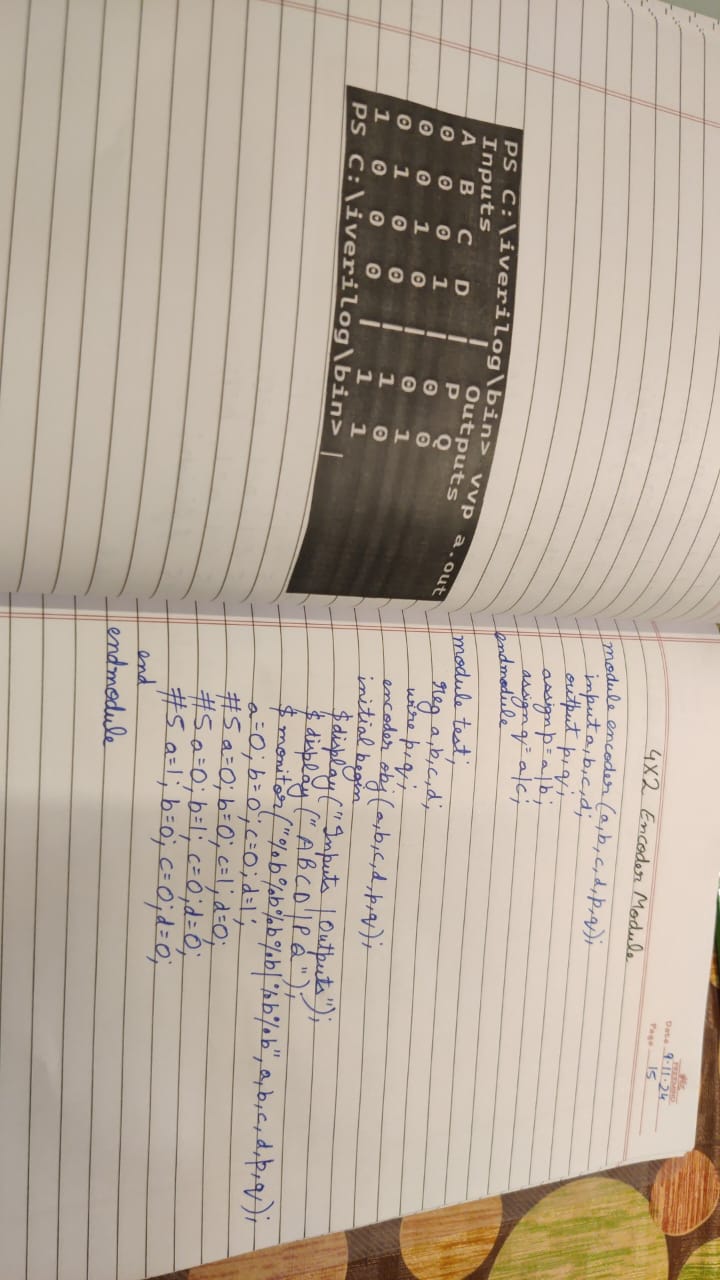 PS C:\iverilog\bin> vvp a.out
Inputs | Outputs
A B C D | P Q
0 0 0 1 | 0 0
0 0 1 0 | 0 1
0 1 0 0 | 1 0
1 0 0 0 | 1 1
PS C:\iverilog\bin> |
Date 9.11.24
Page 15
4X2 Encoder Module
module encoder (a,b,c,d,p,q);
input a,b,c,d;
output p,q;
assign p=a|b;
assign q=a|c;
endmodule
module test;
reg a,b,c,d;
wire p,q;
encoder obj (a,b,c,d,p,q);
initial begin
$display ("Inputs | Outputs");
$display ("A B C D | P Q");
$monitor ("%b%b%b%b|%b%b", a,b,c,d,p,q);
a=0; b=0; c=0; d=1;
#5 a=0; b=0; c=1; d=0;
#5 a=0; b=1; c=0; d=0;
#5 a=1; b=0; c=0; d=0;
end
endmodule